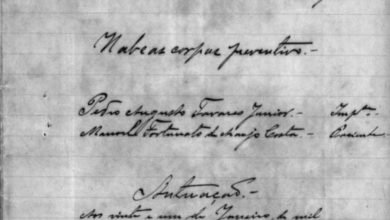 Habeas corpus preventivo.-
Pedro Augusto Tavares Junior.- Impte.
Manoel Fortunato de Araujo Costa- Paciente
Autuação.-
Aos vinte e um de Janeiro de mil